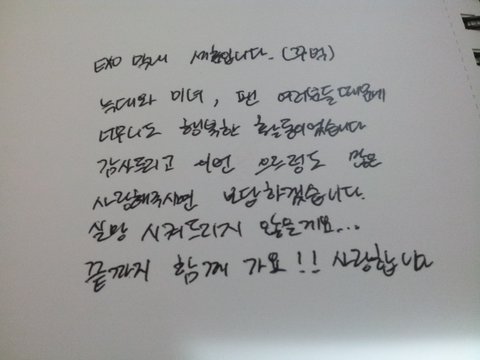 EXO 막내 세훈입니다. (꾸벅)
늑대와 미녀, 팬 여러분들 때문에
너무나도 행복한 활동이었습니다
감사드리고 이번 으르렁도 많은
사랑해주시면 보답하겠습니다.
실망 시켜드리지 않을게요...
끝까지 함께 가요!! 사랑합니다